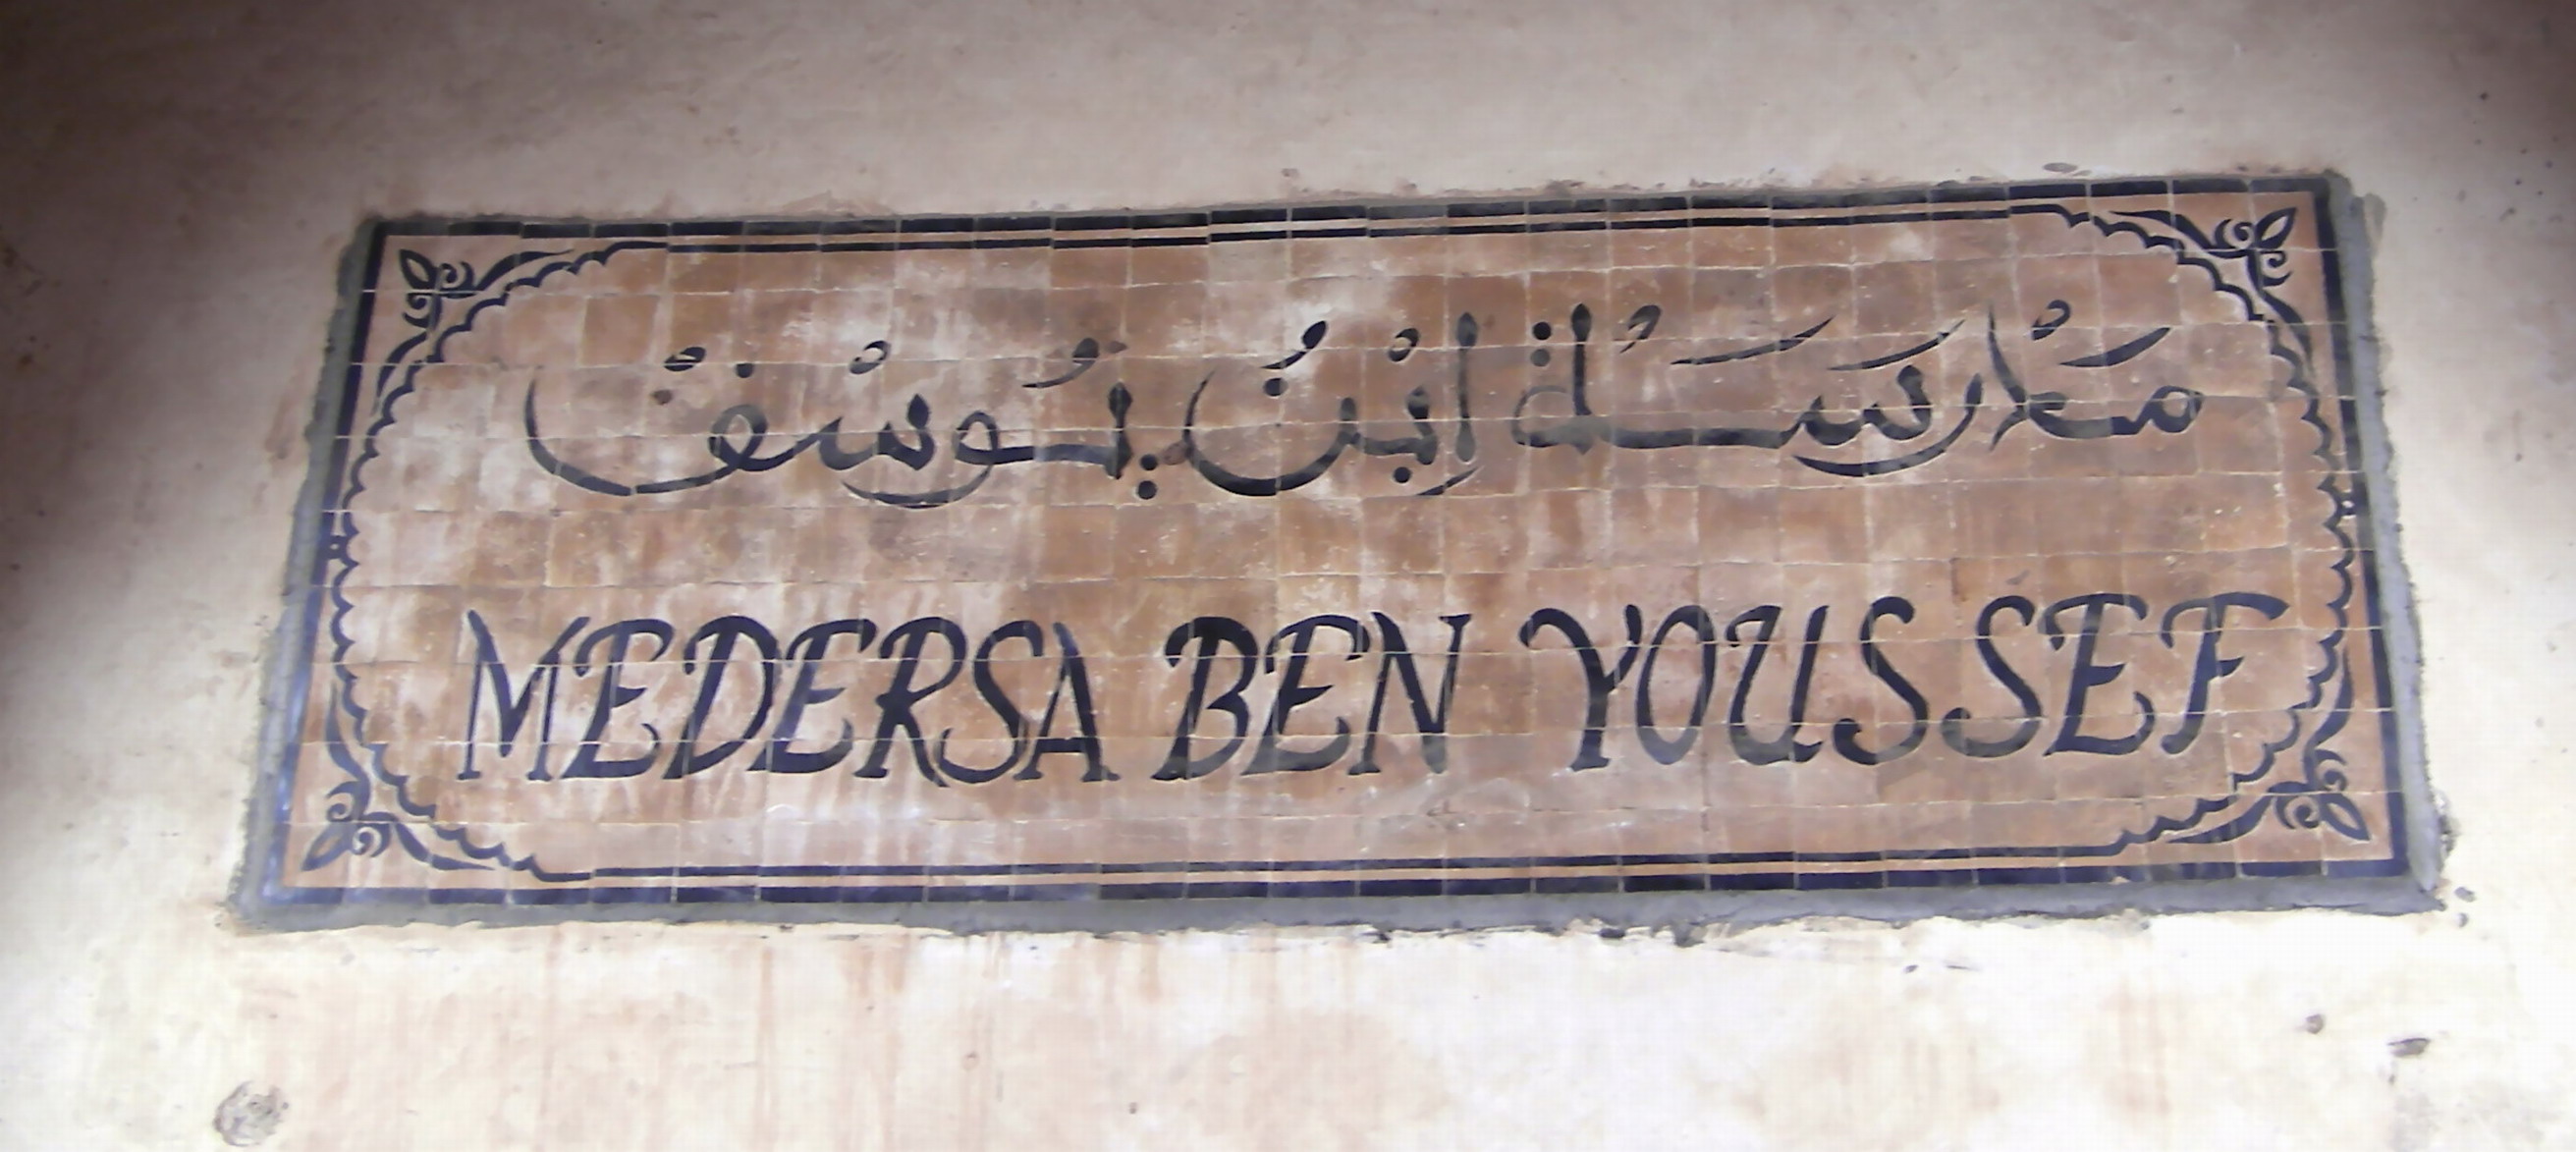 مَدْرَسَةُ ابْنُ يُوسْفْ
MEDERSA BEN YOUSSEF